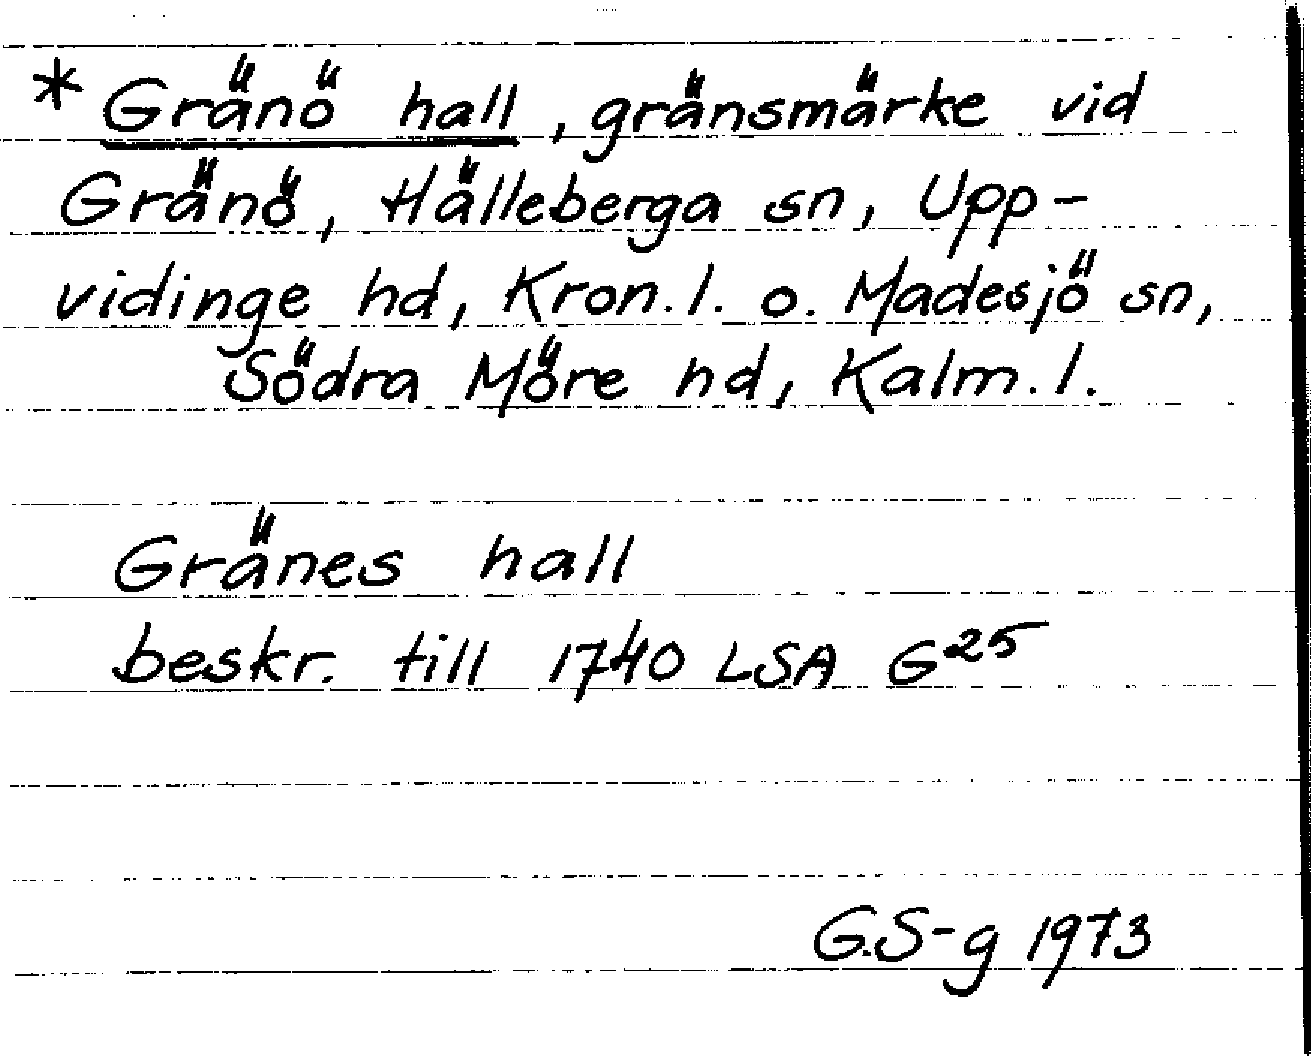 * Gränö hall, gränsmärke vid
Gränö, Hälleberga sn, Upp-
vidinge hd, Kron. l. o. Madesjö sn,
Södra Möre hd, Kalm. l.
Gränes hall
beskr. till 1740 LSA G25
G.S-g 1973